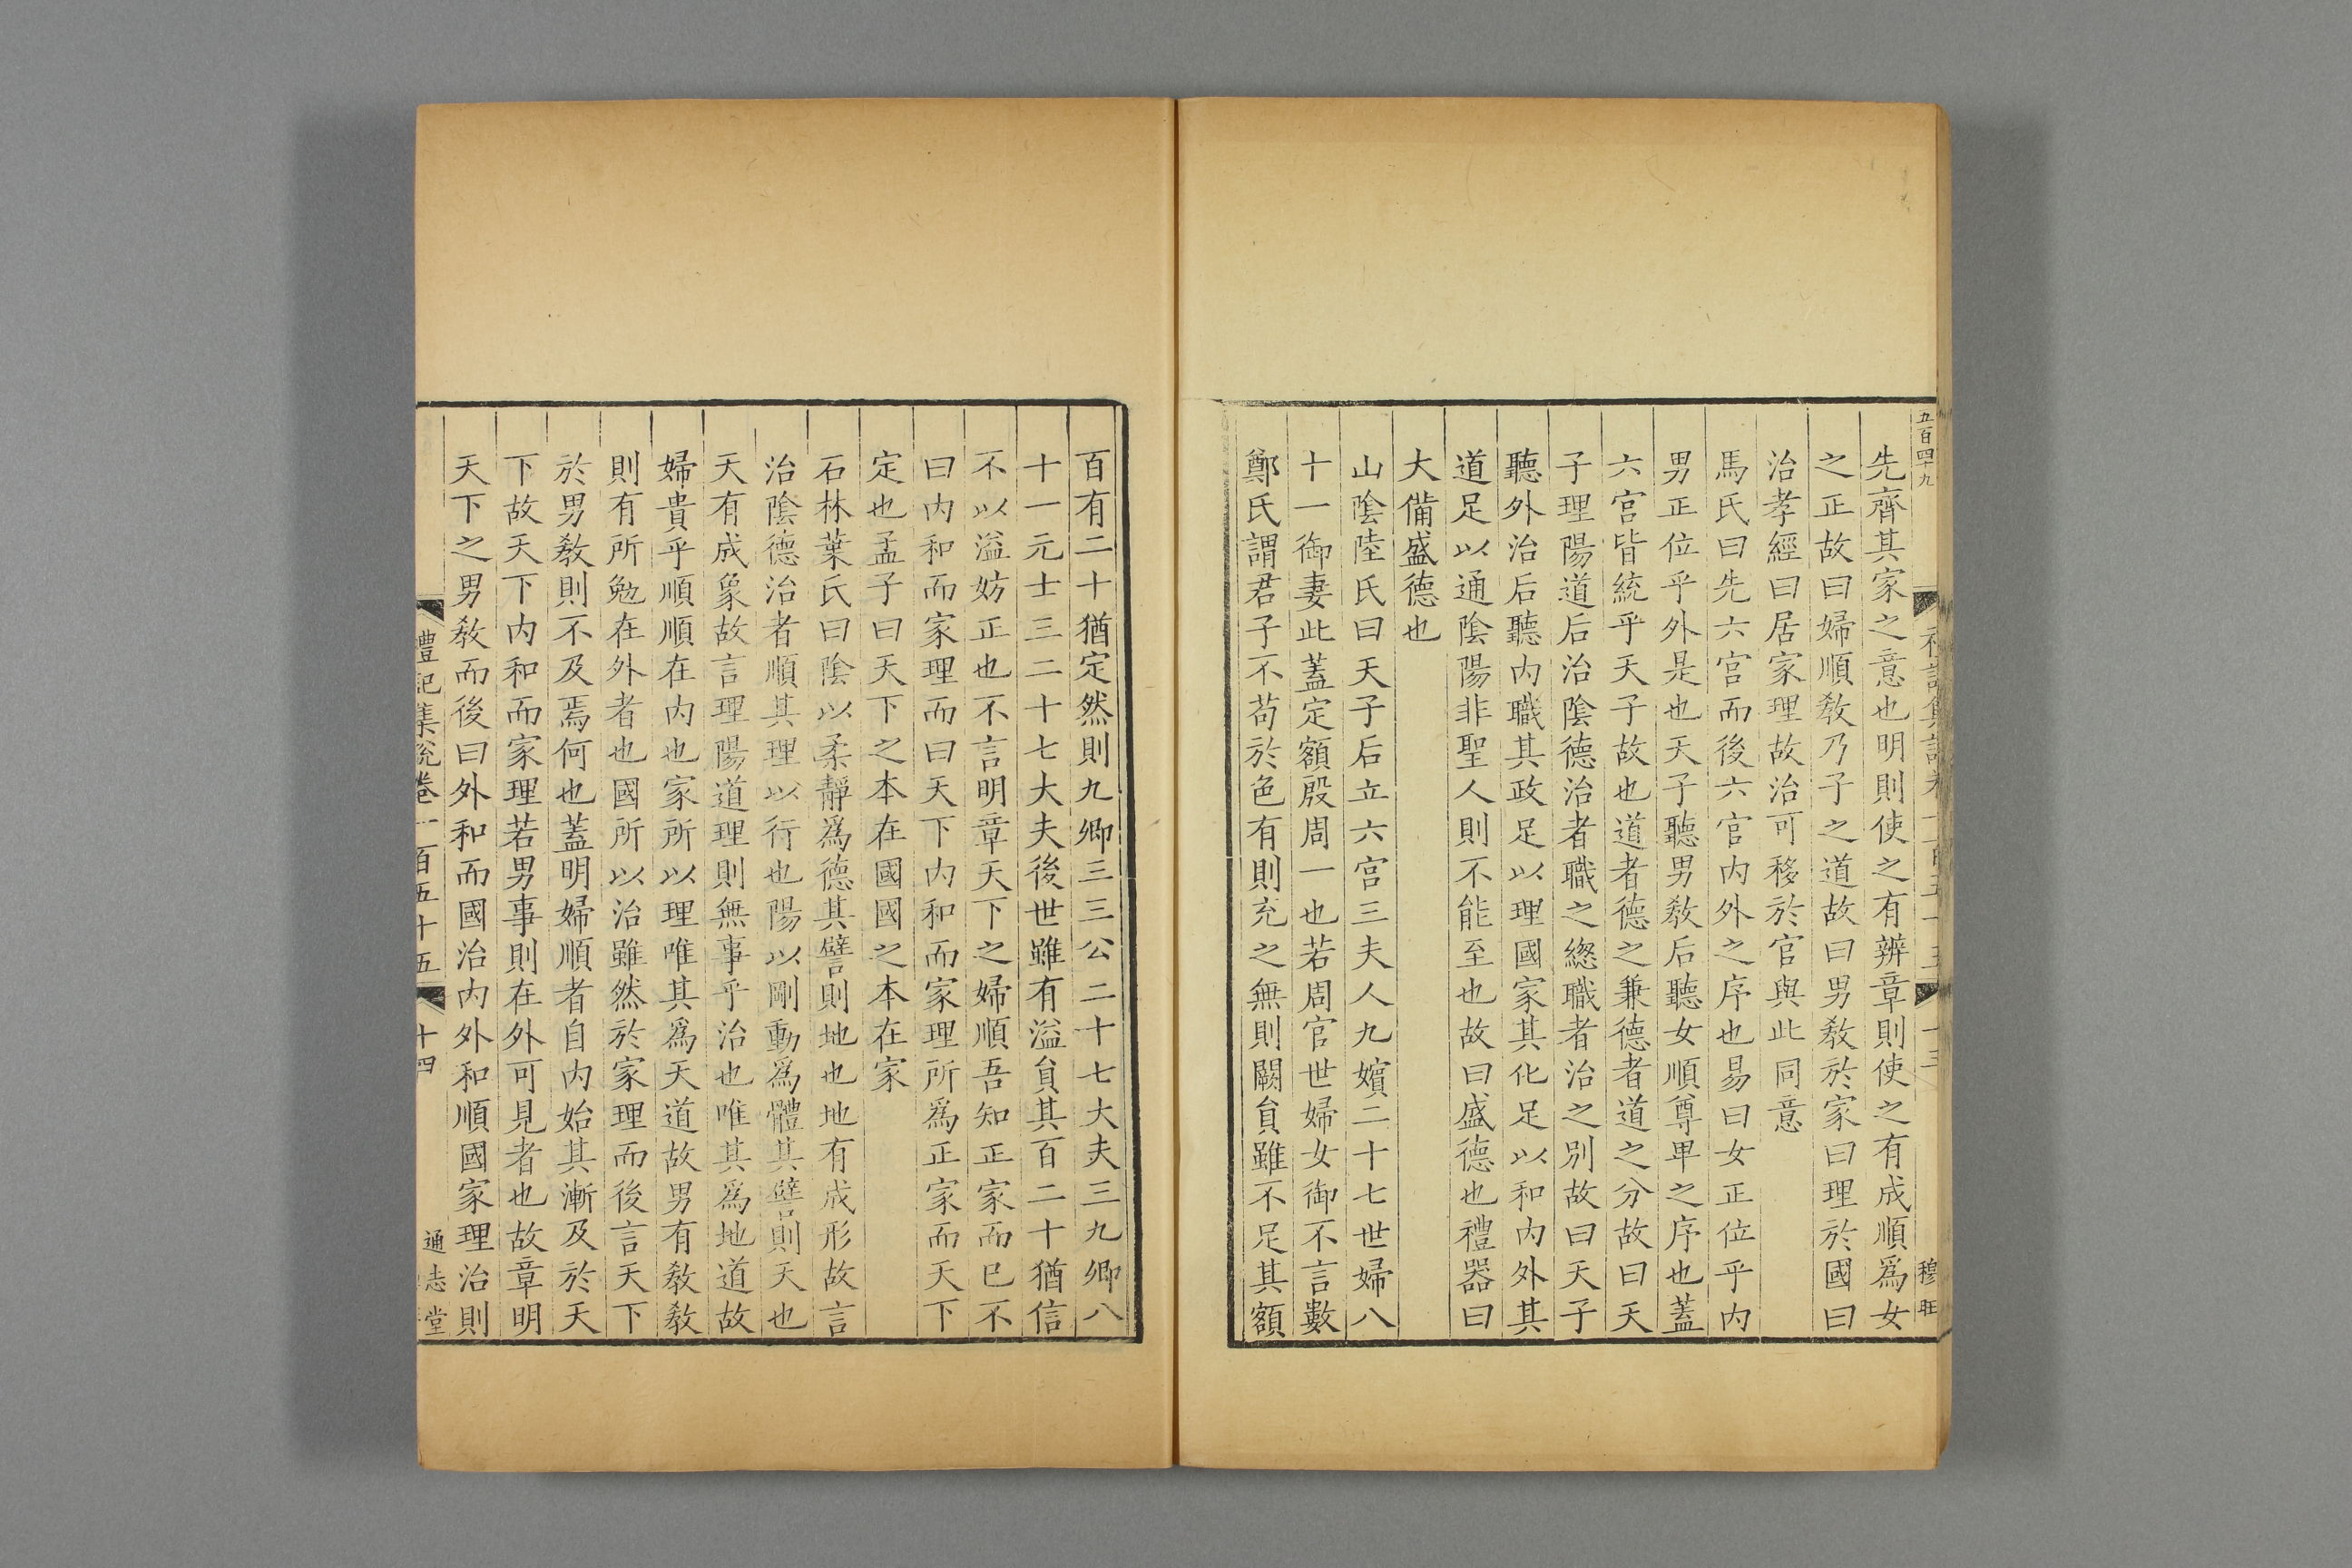 五百四十九
穆旺
先齊其家之意也明則使之有辨章則使之有成順爲女
之正故曰婦順敎乃子之道故曰男敎於家曰理於國曰
治孝經曰居家理故治可移於官與此同意
馬氏曰先六宮而後六官内外之序也易曰女正位乎内
男正位乎外是也天子聽男敎后聽女順尊卑之序也蓋
六宮皆統乎天子故也道者德之兼德者道之分故曰天
子理陽道后治陰德治者職之緫職者治之別故曰天子
聽外治后聽内職其政足以理國家其化足以和内外其
道足以通陰陽非聖人則不能至也故曰盛德也禮器曰
大備盛德也
山陰陸氏曰天子后立六宮三夫人九嬪二十七世婦八
十一御妻此蓋定額殷周一也若周官世婦女御不言數
鄭氏謂君子不苟於色有則充之無則闕貟雖不足其額
百有二十猶定然則九卿三三公二十七大夫三九卿八
十一元士三二十七大夫後世雖有溢貟其百二十猶信
不以溢妨正也不言明章天下之婦順吾知正家而已不
曰内和而家理而曰天下内和而家理所爲正家而天下
定也孟子曰天下之本在國國之本在家
石林葉氏曰陰以柔靜爲德其譬則地也地有成形故言
治陰德治者順其理以行也陽以剛動爲體其譬則天也
天有成象故言理陽道理則無事乎治也唯其爲地道故
婦貴乎順順在内也家所以理唯其爲天道故男有敎敎
則有所勉在外者也國所以治雖然於家理而後言天下
於男敎則不及焉何也蓋明婦順者自内始其漸及於天
下故天下内和而家理若男事則在外可見者也故章明
天下之男敎而後曰外和而國治内外和順國家理治則
禮記集說卷一百五十五
十四
通志堂